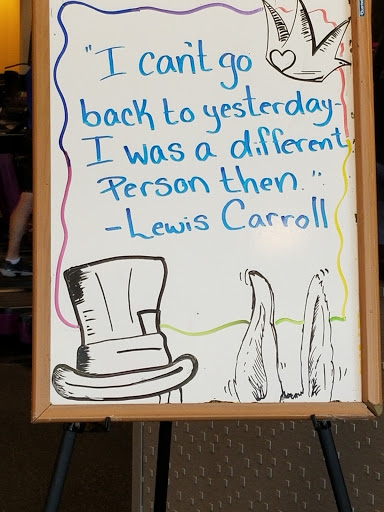 "I can't go
back to yesterday-
I was a different
Person then."
-Lewis Carroll